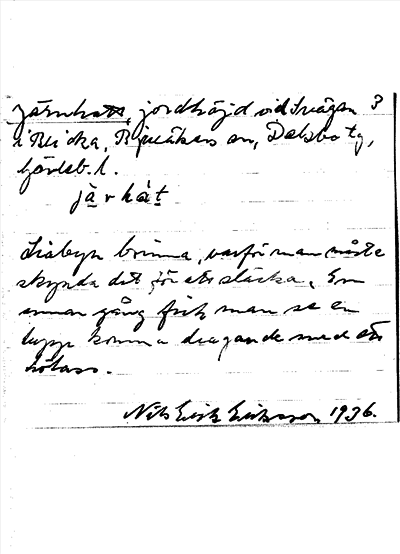 järnhatt, jordhöjd vid vägen 3
i Bricka, Bjuråkers sn, Delsbo tg,
Gävleb. l.
järhat
brinna, varför man måste
skynda det för att släcka. En
annan gång fick man se en
tupp komma dragande med ett
hölass.
Nils Erik Eriksson, 1936.